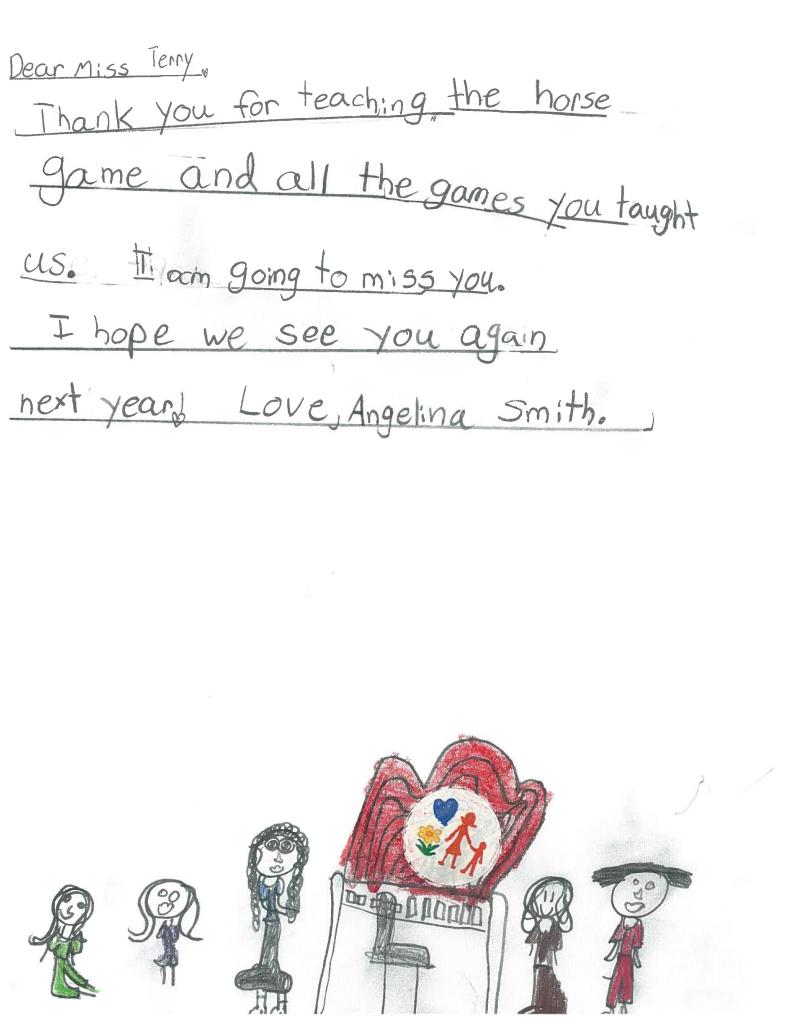 Dear Miss Terry,
Thank you for teaching the horse
game and all the games you taught
us. I am going to miss you.
I hope we see you again
next year! Love, Angelina Smith.